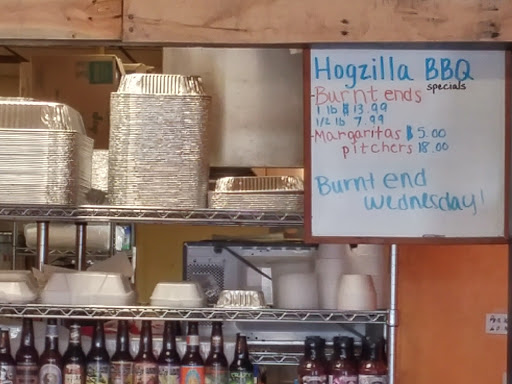 Hogzilla BBQ
specials
-Burnt ends
1 lb $13.99
1/2 lb 7.99
-Margaritas $5.00
pitchers 18.00
Burnt end
Wednesday!